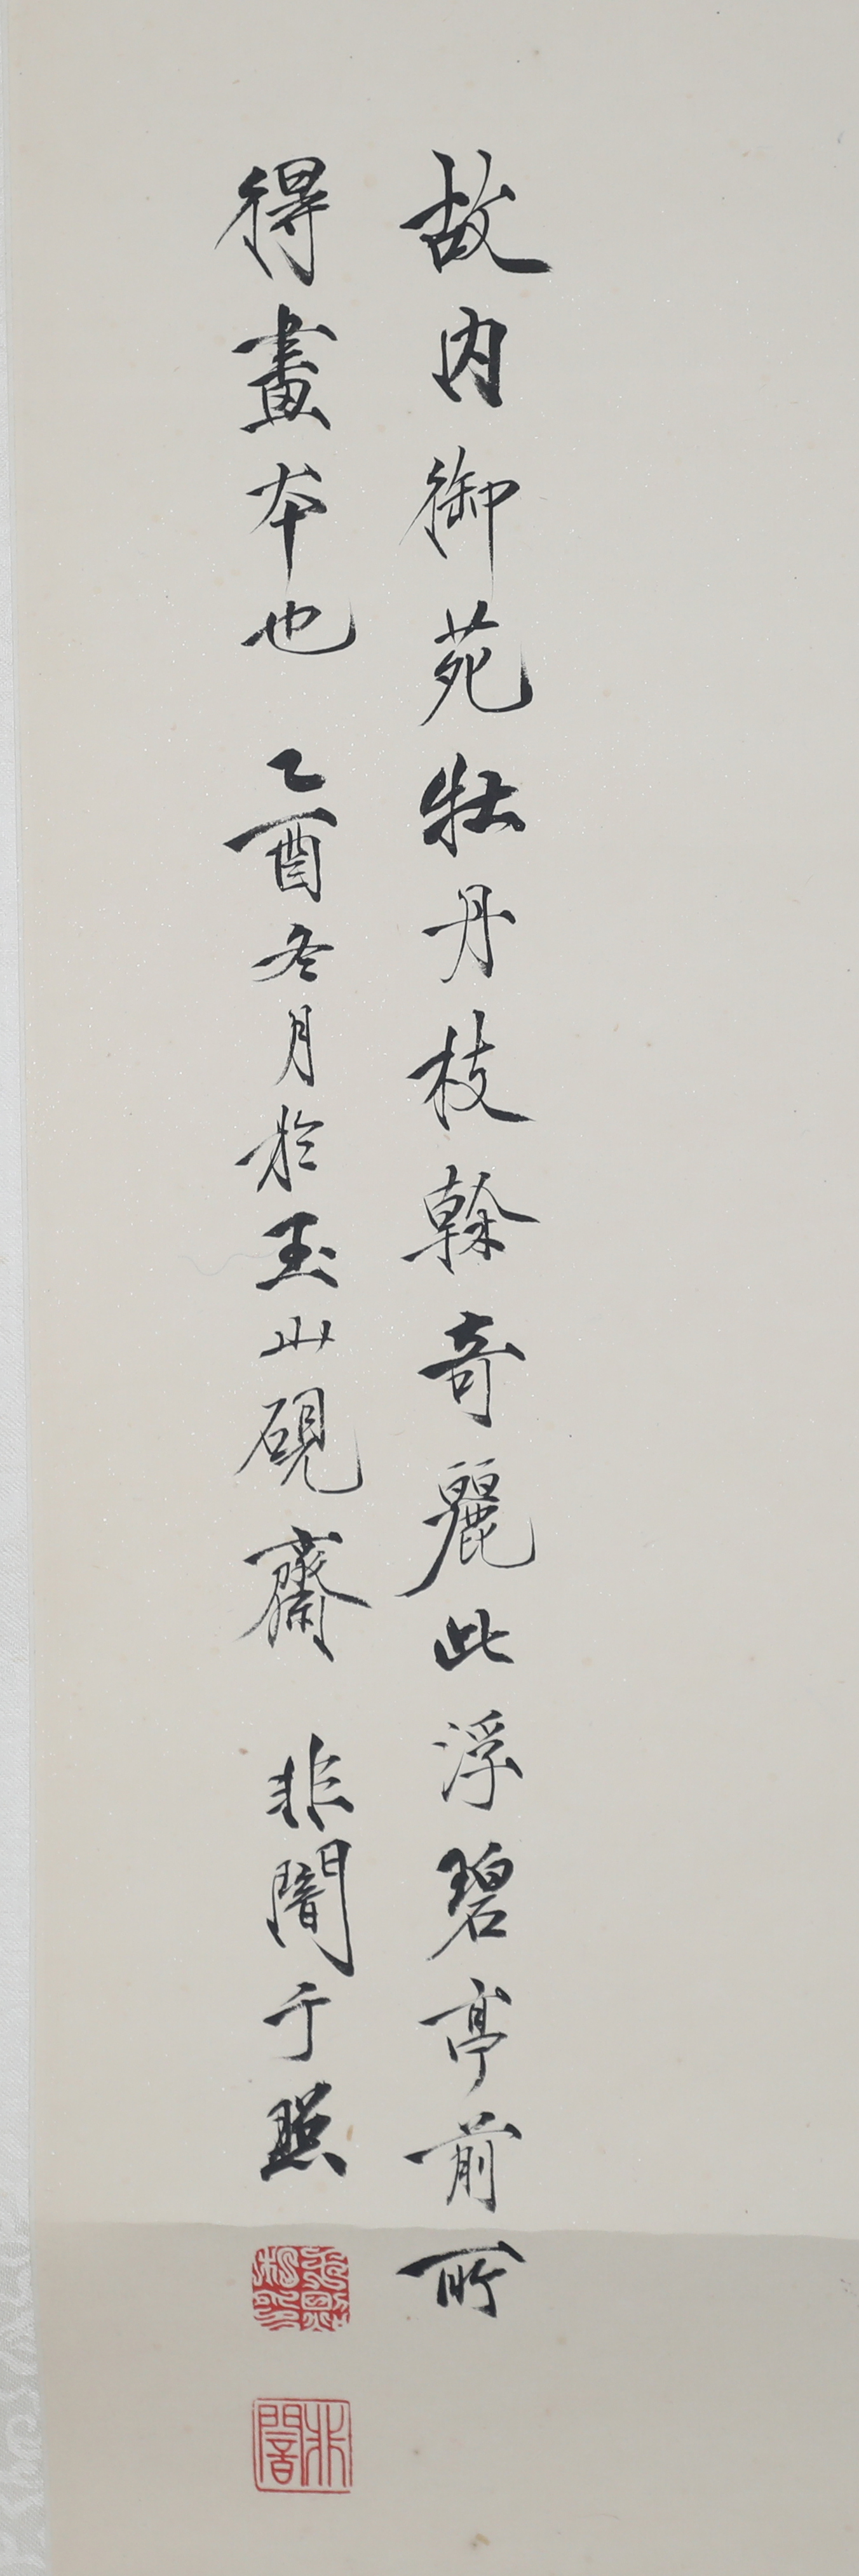 故内御苑牡丹枝榦奇麗此浮碧亭前所
得畫本也 乙酉冬月於玉山硯齋 非闇于照
非闇